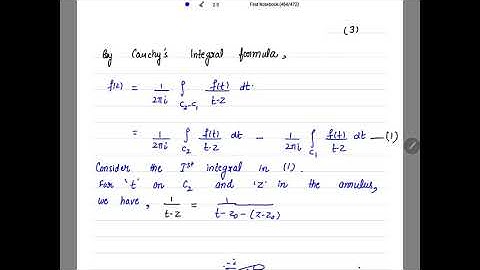 First Notebook (464/472)
(3)
By Cauchy's Integral formula,
f(z) = 1/2πi ∮_{C2-C1} f(t)/t-z dt.
= 1/2πi ∮_{C2} f(t)/t-z dt - 1/2πi ∮_{C1} f(t)/t-z dt —(1)
Consider the Ist integral in (1).
For 't' on C2 and 'z' in the annulus,
we have, 1/t-z = 1/t-z0-(z-z0)